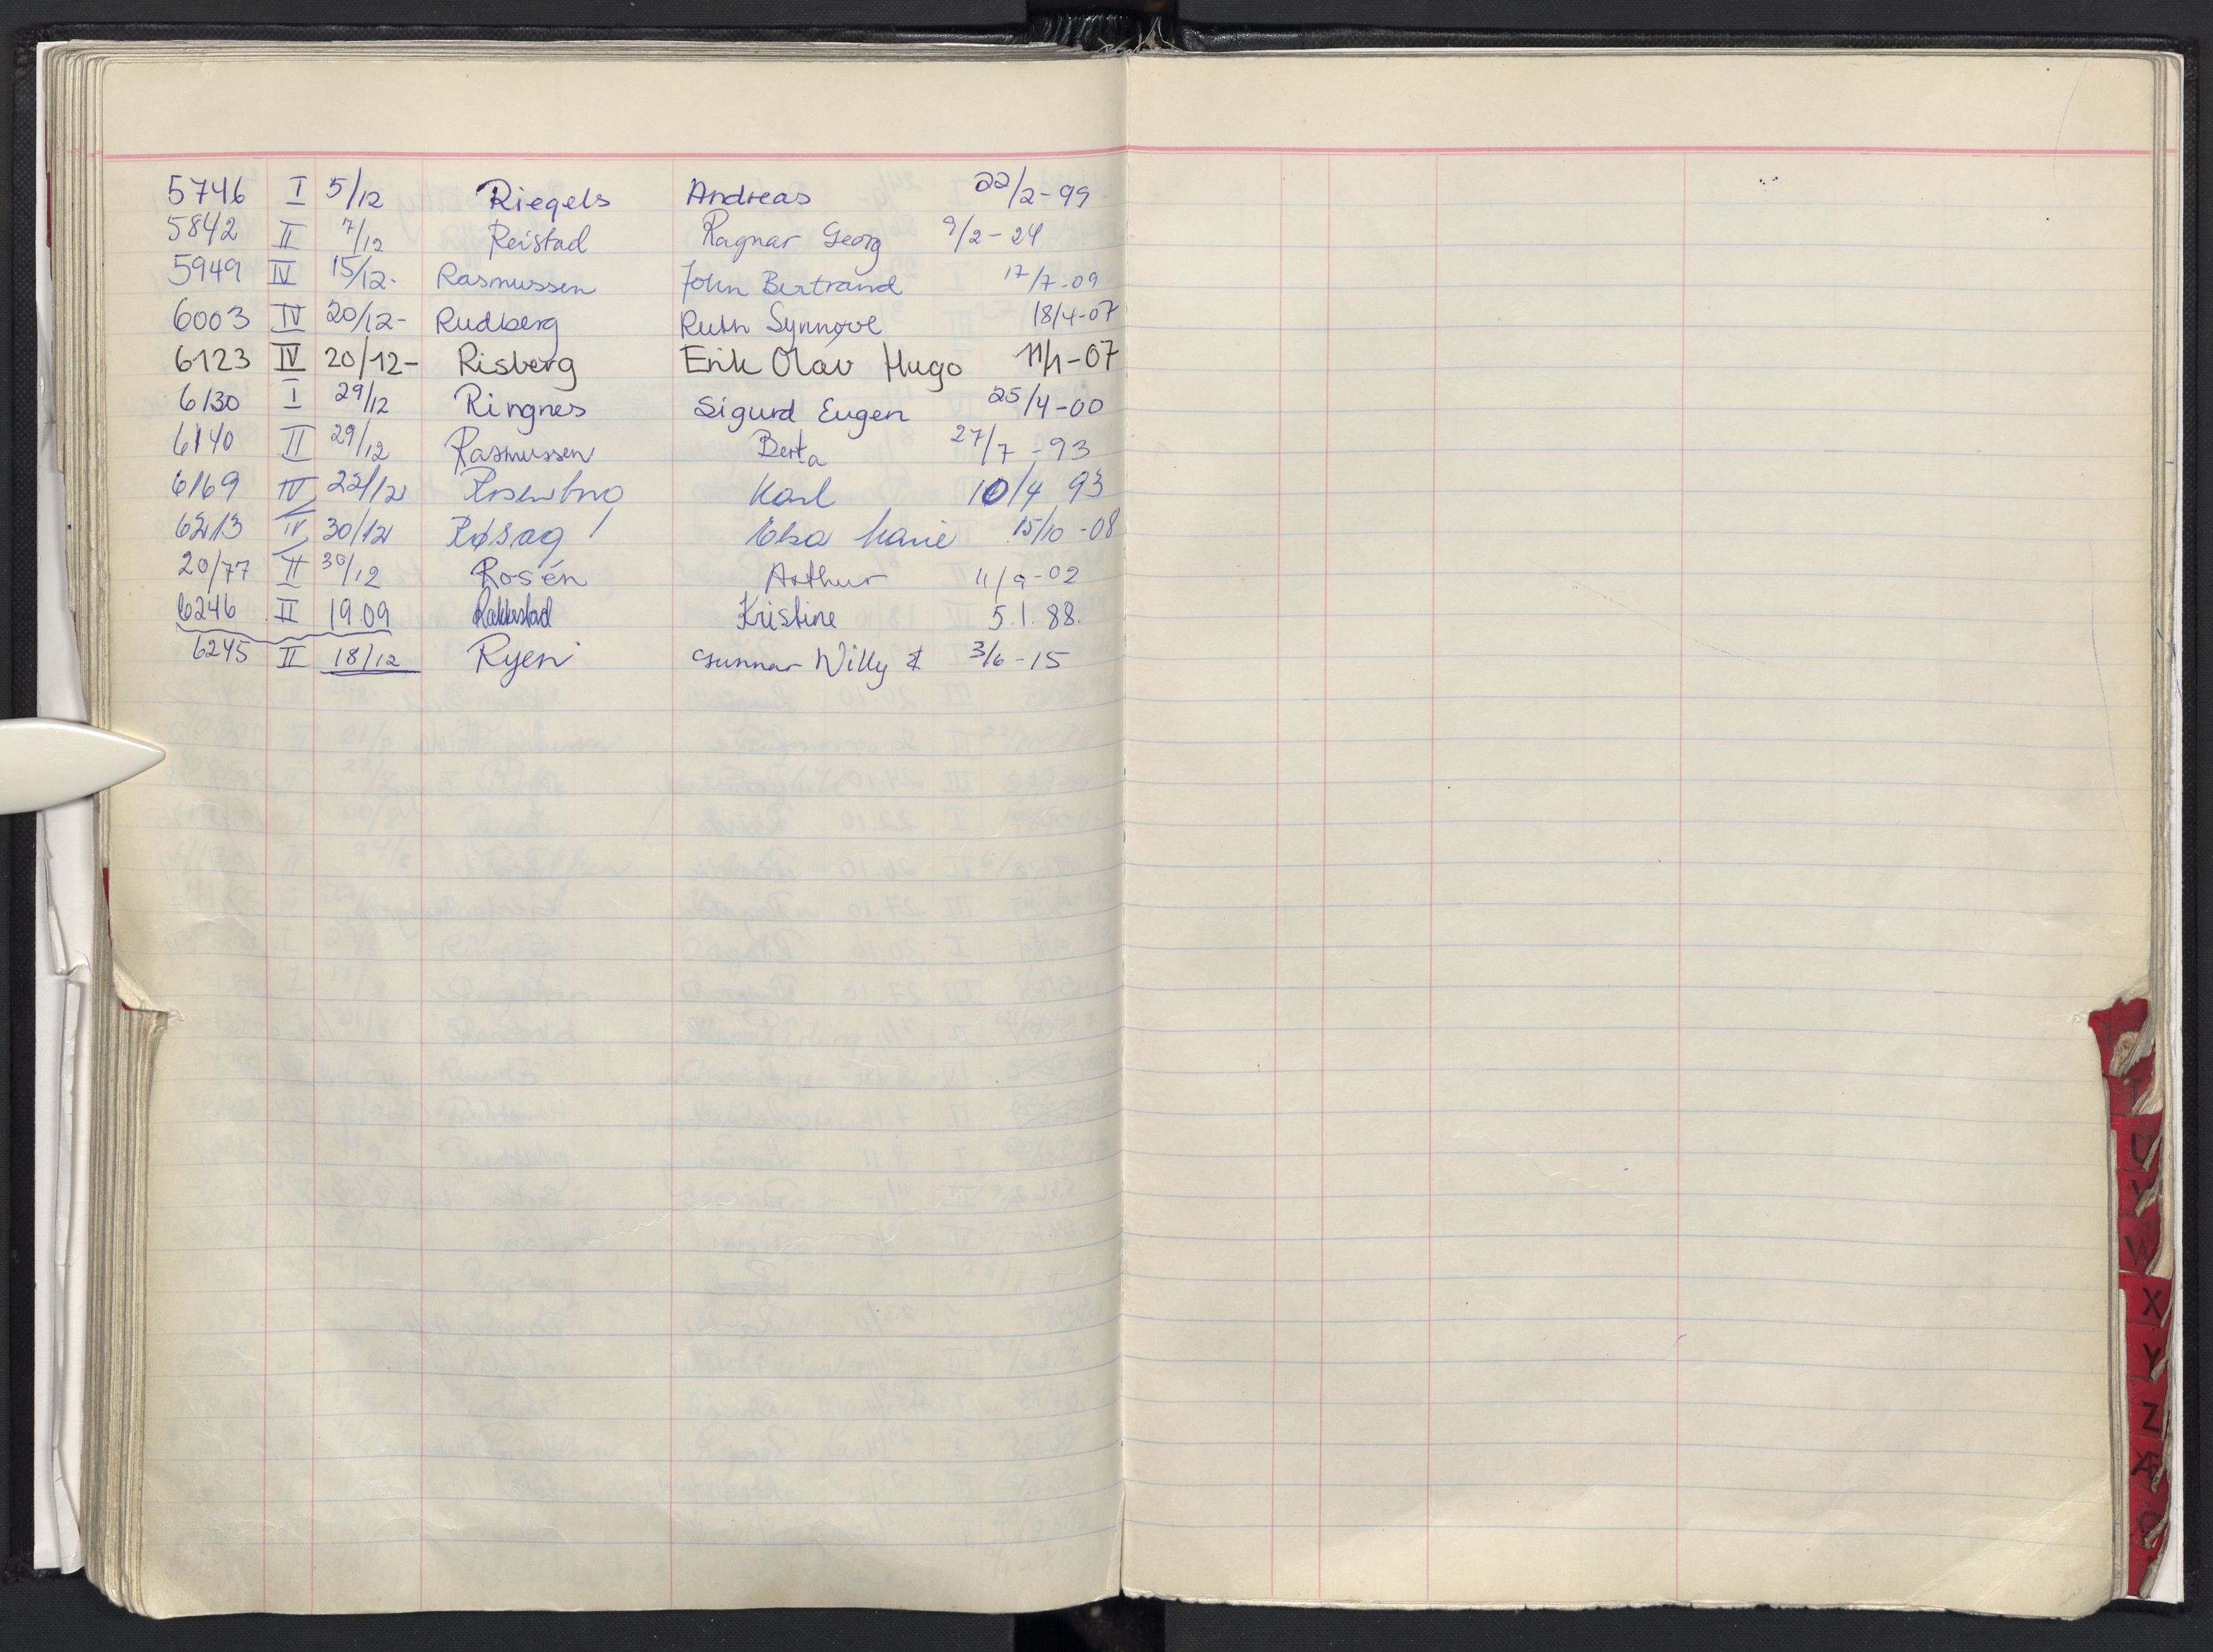 5746 I 5/12 Riegels Andreas 22/2-99
5842 II 7/12 Reistad Ragnar Georg 9/2-24
5949 IV 15/12. Rasmussen John Bertrand 17/7-09
6003 IV 20/12- Rudberg Ruth Synnøve 18/4-07
6123 IV 20/12- Risberg Erik Olav Hugo 11/1-07
6130 I 29/12 Ringnes Sigurd Eugen 25/4-00
6140 II 29/12 Rasmussen Berta 27/7-93
6169 IV 22/12 Karl 10/4 93
6213 IV 30/12 Røsag Elsa Marie 15/10-08
20/77 II 30/12 Rosén Arthur 11/9-02
6246 II 19.09 Rakkestad Kristine 5.1.88.
6245 II 18/12 Ryen Gunnar Willy 3/6-15
U
V
W
X
Y
Z
Æ
Ø